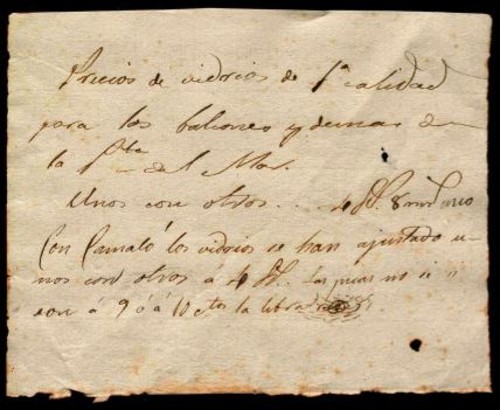 Precios de vidrios de 1ª calidad
para los balcones y demas de
la Pta del Mar.
Unos con otros . . . 4
Con Camaló los vidrios se han ajustado u-
nos con otros á 4 las
á 9 ó á 10 ctos la libra